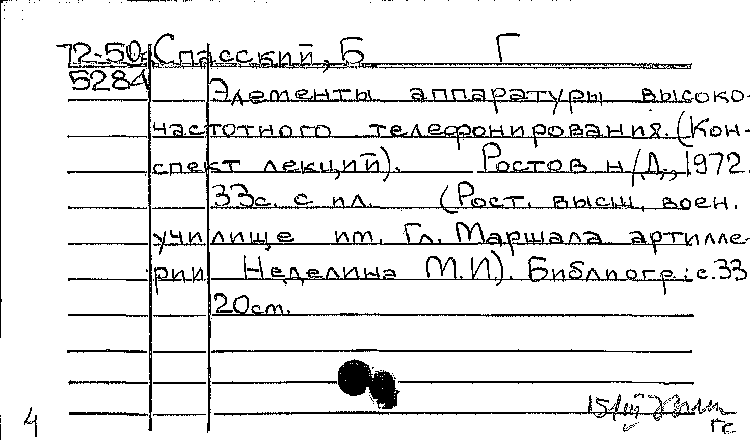 72-50 Спасский, Б Г
5284 Элементы аппаратуры высоко-
частотного телефонирования. (Кон-
спект лекций). Ростов н/Д., 1972.
33с. с ил. (Рост. высш. воен.
училище им. Гл. Маршала артилле-
рии Неделина М.И). Библиогр: с. 33
20см.
4
гс